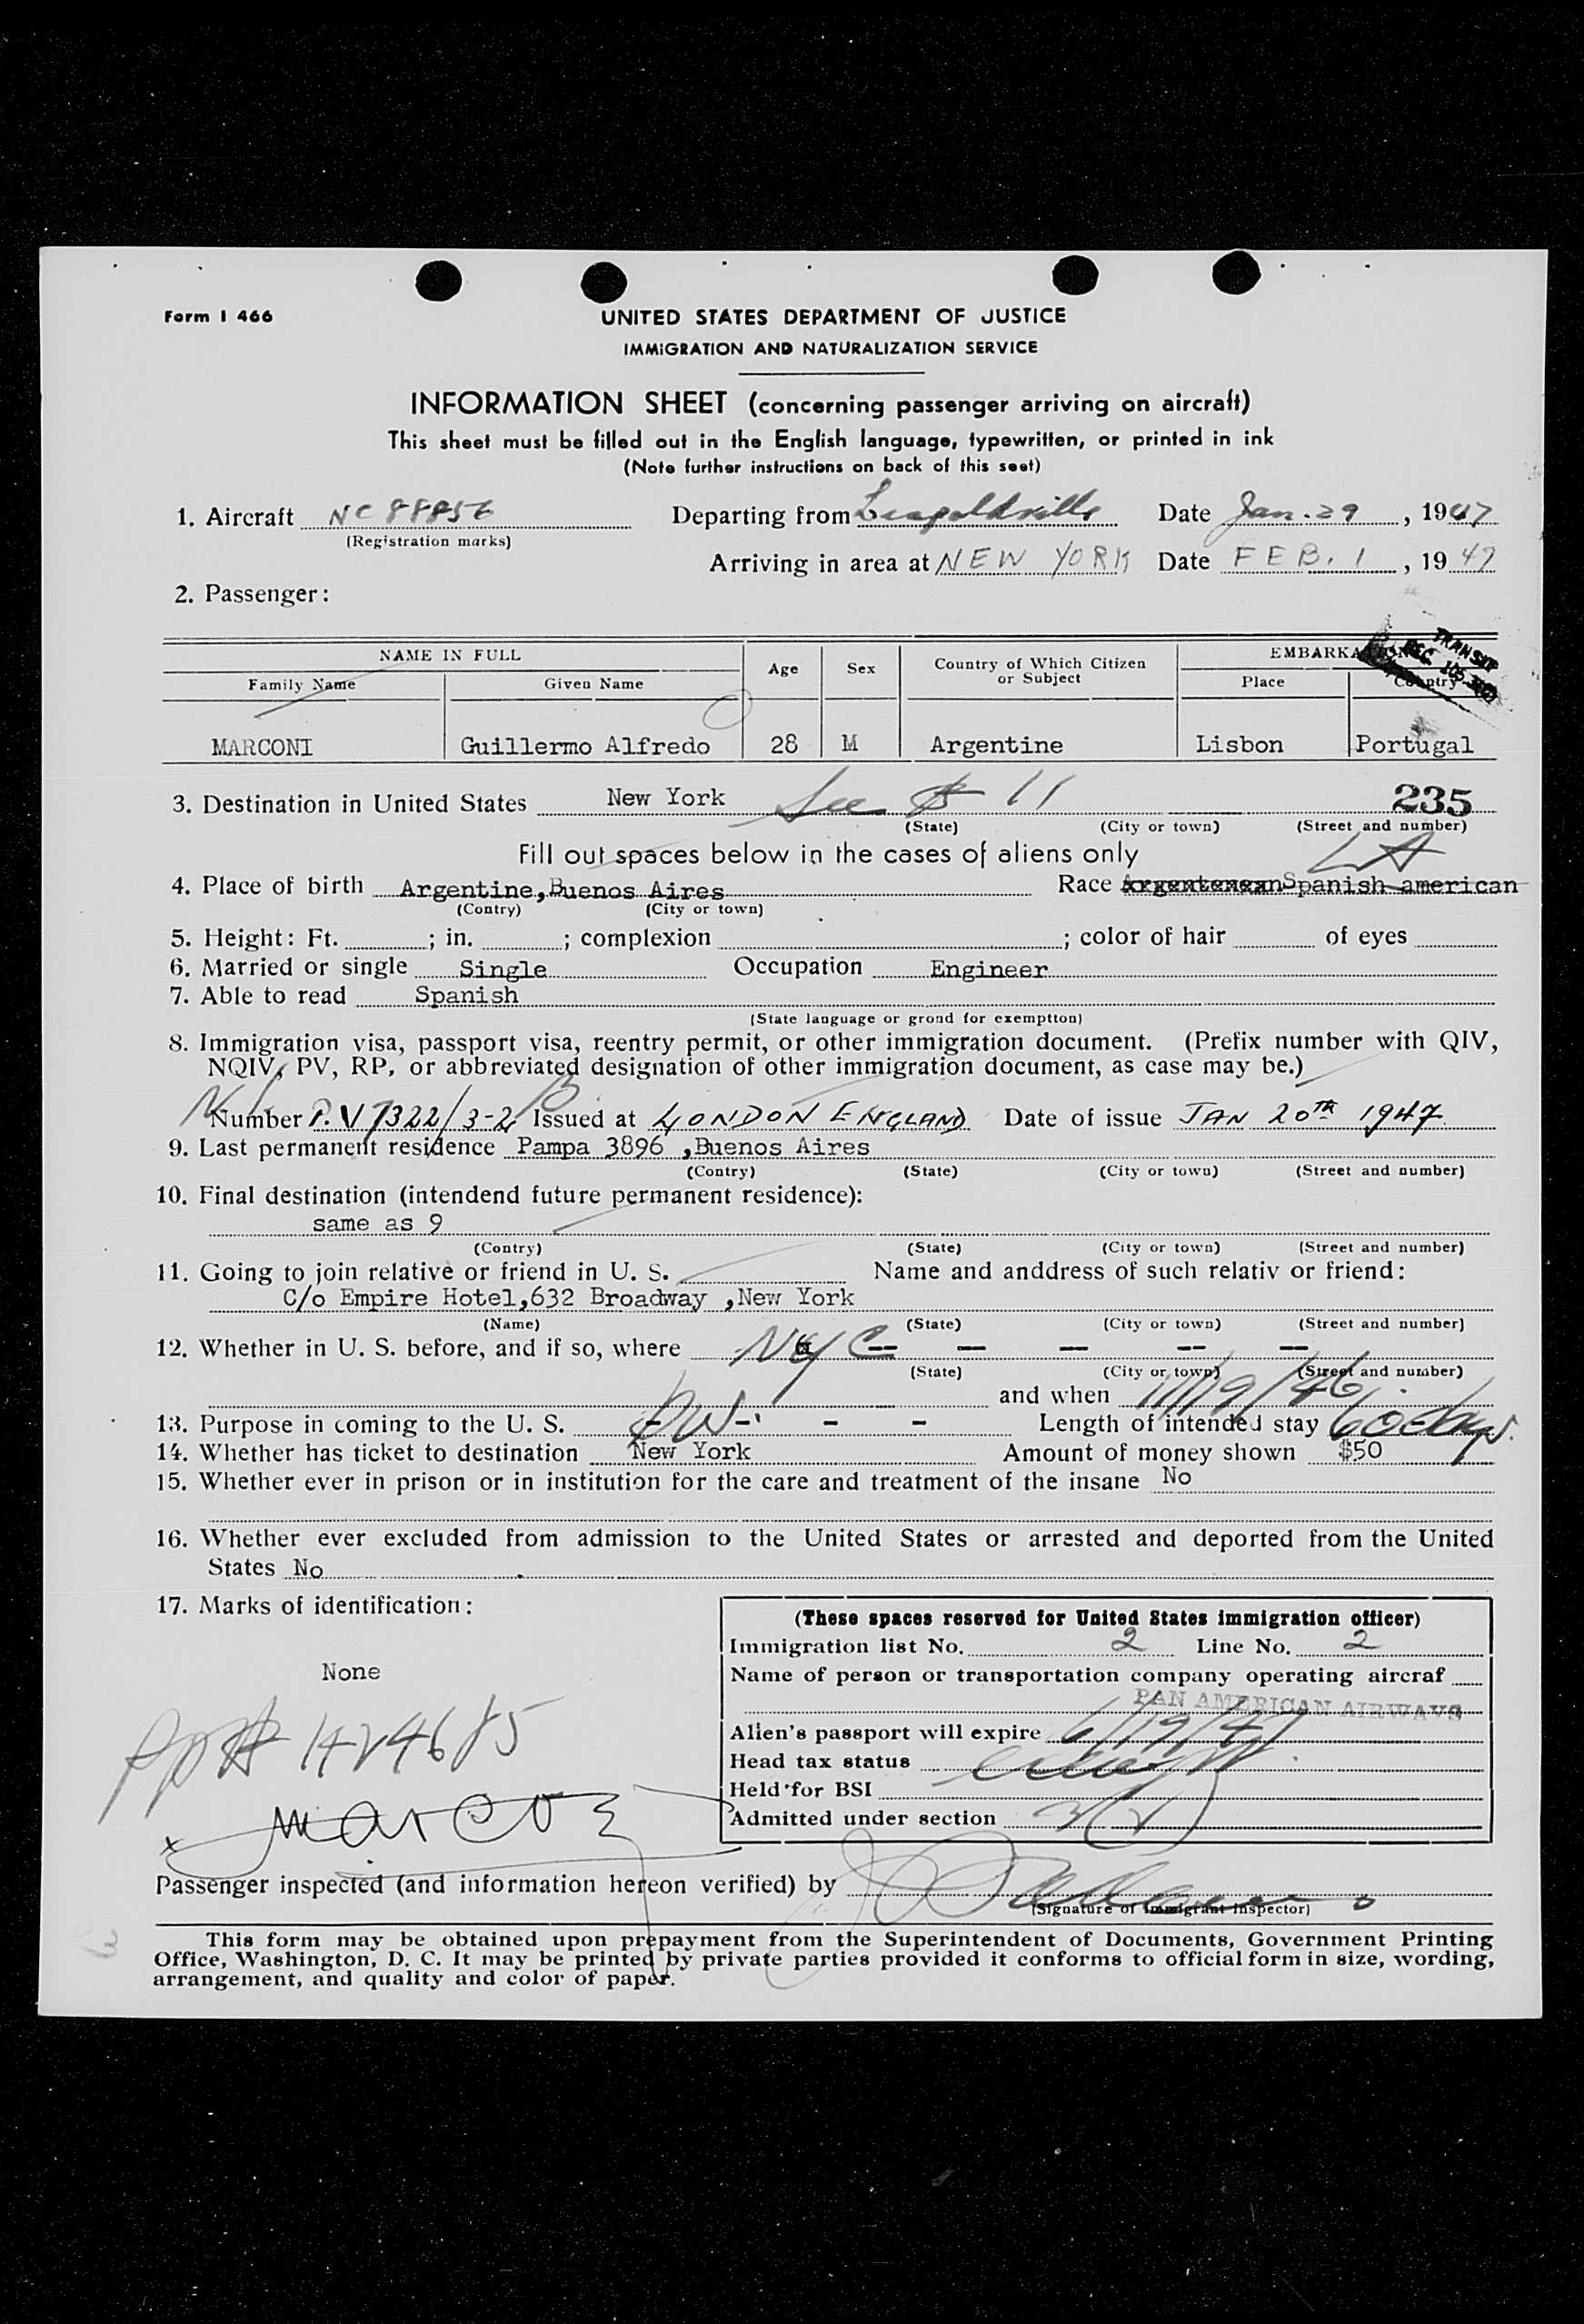 Form I 466
UNITED STATES DEPARTMENT OF JUSTICE
IMMIGRATION AND NATURALIZATION SERVICE
INFORMATION SHEET (concerning passenger arriving on aircraft)
This sheet must be filled out in the English language, typewritten, or printed in ink
(Note further instructions on back of this seet)
1. Aircraft NC 88856 Departing from Leopoldville Date Jan. 29, 1947
(Registration marks)
Arriving in area at NEW YORK Date FEB. 1, 1947
2. Passenger:
NAME IN FULL Age Sex Country of Which Citizen or Subject EMBARKATION
Family Name Given Name Place Country
TRANSIT
MARCONI Guillermo Alfredo 28 M Argentine Lisbon Portugal
3. Destination in United States New York See # 11 235
(State) (City or town) (Street and number)
Fill out spaces below in the cases of aliens only
LA
4. Place of birth Argentine,Buenos Aires Race Spanish american
(Contry) (City or town)
5. Height: Ft. ; in. ; complexion ; color of hair of eyes
6. Married or single Single Occupation Engineer
7. Able to read Spanish
(State language or grond for exemptton)
8. Immigration visa, passport visa, reentry permit, or other immigration document. (Prefix number with QIV,
NQIV, PV, RP, or abbreviated designation of other immigration document, as case may be.)
Number P.V 7322/3-2 Issued at LONDON ENGLAND Date of issue JAN 20TH 1947
9. Last permanent residence Pampa 3896 ,Buenos Aires
(Contry) (State) (City or town) (Street and number)
10. Final destination (intendend future permanent residence):
same as 9
(Contry) (State) (City or town) (Street and number)
11. Going to join relative or friend in U. S. Name and anddress of such relativ or friend:
C/o Empire Hotel,632 Broadway ,New York
(Name) (State) (City or town) (Street and number)
12. Whether in U. S. before, and if so, where NYC -- -- -- -- --
(State) (City or town) (Street and number)
and when 11/19/46
13. Purpose in coming to the U. S. - - - Length of intended stay 60 days.
14. Whether has ticket to destination New York Amount of money shown $50
15. Whether ever in prison or in institution for the care and treatment of the insane No
16. Whether ever excluded from admission to the United States or arrested and deported from the United
States No
17. Marks of identification:
None
(These spaces reserved for United States immigration officer)
Immigration list No. 2 Line No. 2
Name of person or transportation company operating aircraf
PAN AMERICAN AIRWAYS
Alien's passport will expire 6/19/47
Head tax status exempt
Held for BSI
Admitted under section 3(2)
Passenger inspected (and information hereon verified) by
(Signature of Immigrant Inspector)
This form may be obtained upon prepayment from the Superintendent of Documents, Government Printing
Office, Washington, D. C. It may be printed by private parties provided it conforms to official form in size, wording,
arrangement, and quality and color of paper.